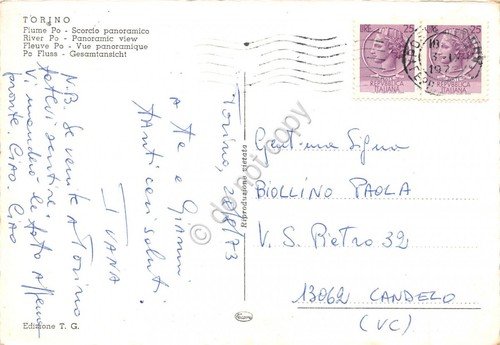 TORINO
Fiume Po - Scorcio panoramico
River Po - Panoramic view
Fleuve Po - Vue panoramique
Po Fluss - Gesamtansicht
N.B. Se venite a Torino
fatevi sentire.
Vi manderò le foto appena
pronte. Ciao. Ciao
Torino, 28/8/73
A Te e Gianni
tanti cari saluti
IVANA
Riproduzione vietata
25
25
REPUBBLICA
ITALIANA
REPUBBLICA
ITALIANA
Gent.ma Sig.na
BIOLLINO PAOLA
V. S. PIETRO 32
13062 CANDELO
(VC)
Edizione T. G.